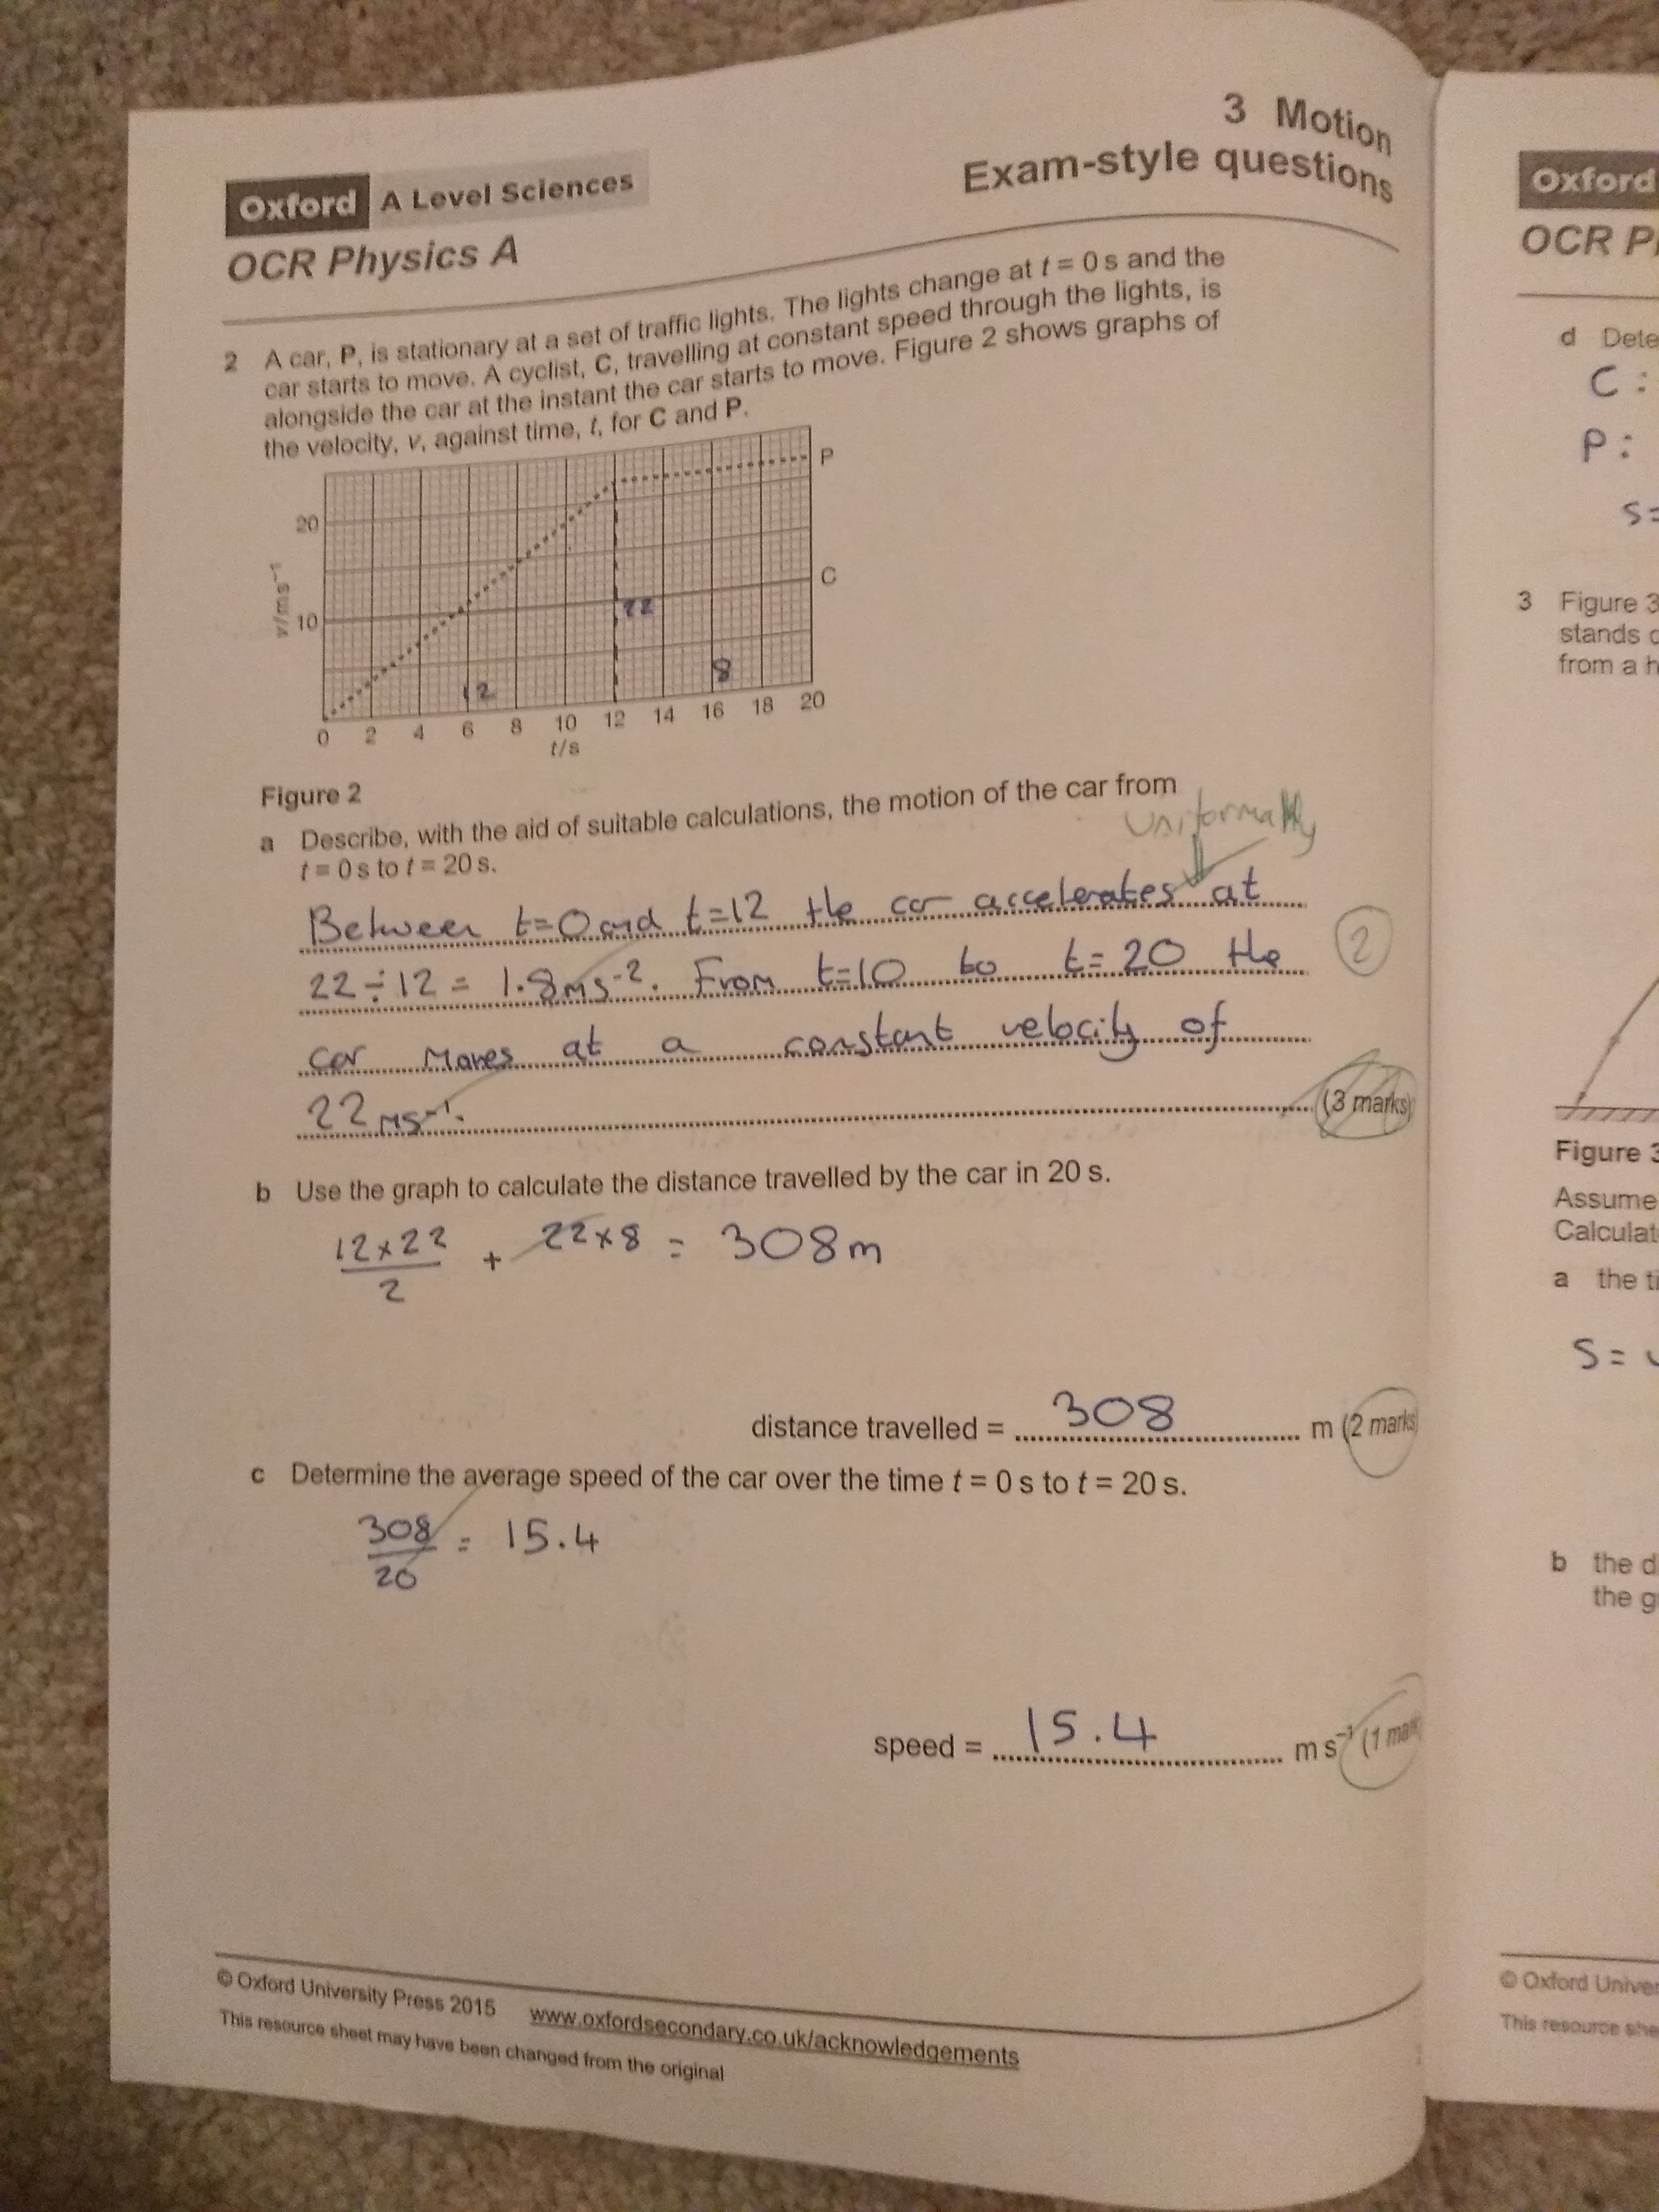 3 Motion
Exam-style questions
Oxford A Level Sciences
OCR Physics A
2 A car, P, is stationary at a set of traffic lights. The lights change at t = 0 s and the
car starts to move. A cyclist, C, travelling at constant speed through the lights, is
alongside the car at the instant the car starts to move. Figure 2 shows graphs of
the velocity, v, against time, t, for C and P.
P
20
C
v/ms⁻¹
10
22
12
8
0 2 4 6 8 10 12 14 16 18 20
t/s
Figure 2
a Describe, with the aid of suitable calculations, the motion of the car from
t = 0 s to t = 20 s.
Between t=0 and t=12 the car accelerates at
22 ÷ 12 = 1.8ms⁻². From t=10 to t=20 the
2
car moves at a constant velocity of
22 ms⁻¹.
(3 marks)
b Use the graph to calculate the distance travelled by the car in 20 s.
12 x 22 / 2 + 22 x 8 = 308m
distance travelled = 308 m (2 marks)
c Determine the average speed of the car over the time t = 0 s to t = 20 s.
308 / 20 = 15.4
speed = 15.4 m s⁻¹ (1 mark
© Oxford University Press 2015 www.oxfordsecondary.co.uk/acknowledgements
This resource sheet may have been changed from the original
Oxford
OCR P
d Dete
C :
P :
s=
3 Figure 3
stands
from a h
Figure 3
Assume
Calculat
a the ti
S =
b the d
the g
© Oxford Univer
This resource she